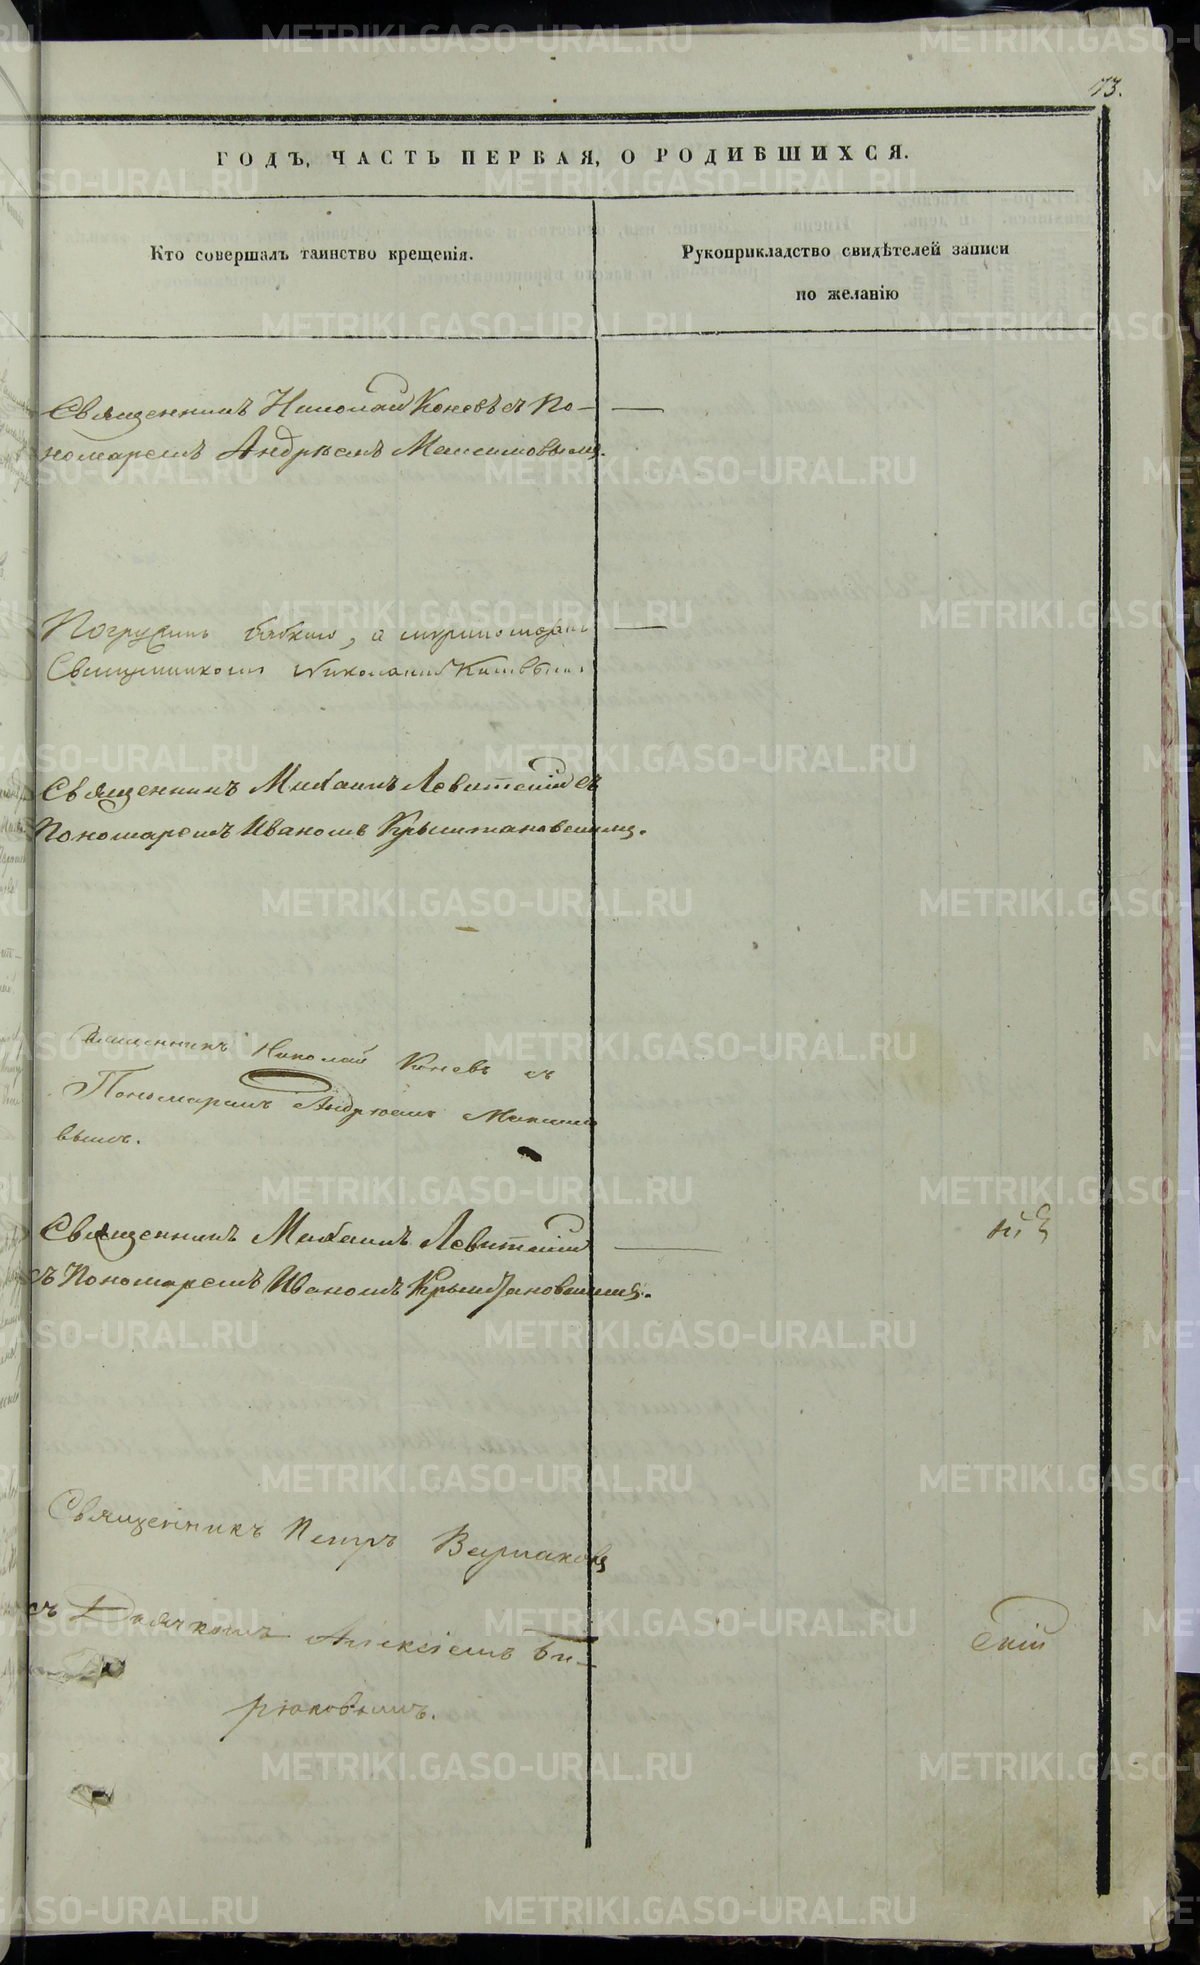 73.
ГОДЪ, ЧАСТЬ ПЕРВАЯ, О РОДИВШИХСЯ.
Кто совершалъ таинство крещенія.
Рукоприкладство свидѣтелей записи
по желанію
Священникъ Николай Коневъ съ По-
номаремъ Андреемъ Максимовымъ.
Погружалъ бабкою, а
Священникомъ Николаемъ Коневымъ.
Священникъ Михаилъ Левитскій съ
Пономаремъ Иваномъ Крыжановскимъ.
Священникъ Николай Коневъ съ
Пономаремъ Андреемъ Максимо
вымъ.
Священникъ Михаилъ Левитскій
съ Пономаремъ Иваномъ Крыжановскимъ.
Священникъ Петръ
съ Дьячкомъ Алексіемъ Би-
рюковымъ.
скій
METRIKI.GASO-URAL.RU